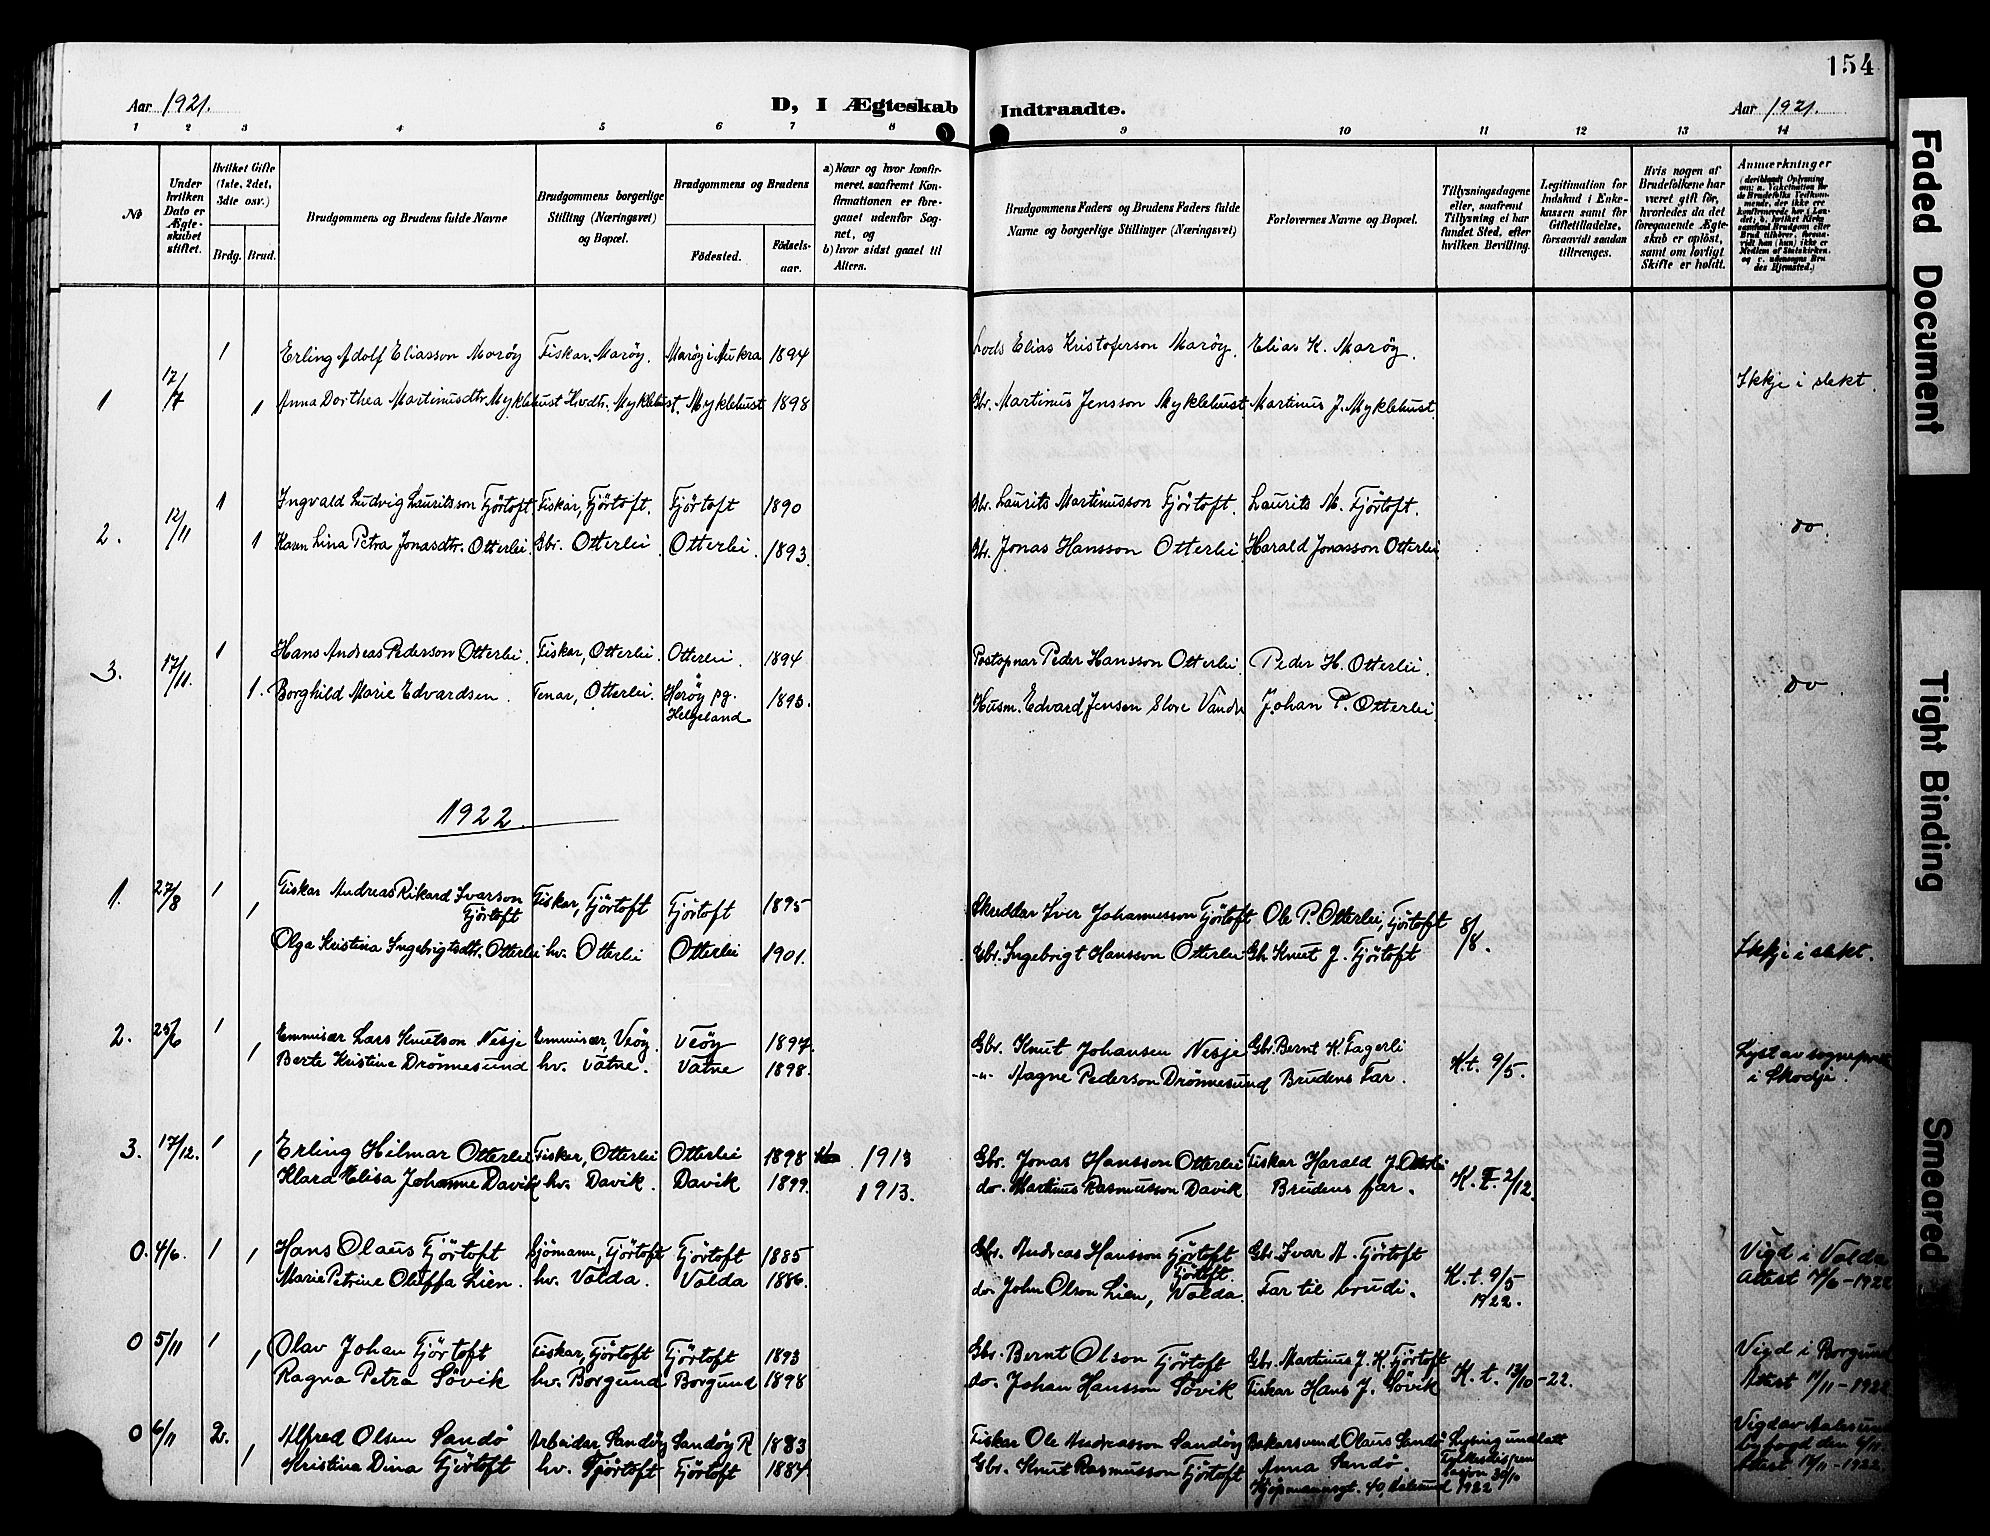 154
Aar 1921.
D, I Ægteskab Indtraadte.
Aar 1921.
1 2 3 4 5 6 7 8 9 10 11 12 13 14
№
Under hvilken Dato er Ægteskabet stiftet.
Hvilket Gifte (1ste, 2det, 3dte osv.)
Brdg. Brud.
Brudgommens og Brudens fulde Navne
Brudgommens borgerlige Stilling (Næringsvei) og Bopæl.
Brudgommens og Brudens
Födested. Födselsaar.
a) Naar og hvor konfirmeret, saafremt Konfirmationen er foregaaet udenfor Sognet, og
b) hvor sidst gaaet til Alters.
Brudgommens Faders og Brudens Faders fulde Navne og borgerlige Stillinger (Næringsvei)
Forlovernes Navne og Bopæl.
Tillysningsdagene eller, saafremt Tillysning ei har fundet Sted, efter hvilken Bevilling.
Legitimation for Indskud i Enkekassen samt for Giftetilladelse, forsaavidt saadan tiltrænges.
Hvis nogen af Brudefolkene har været gift för, hvorledes da det foregaaende Ægteskab er oplöst, samt om lovligt Skifte er holdt.
Anmærkninger
1 17/7 1 Erling Adolf Eliasson Maröy Fiskar. Maröy. Maröy i Aukra 1894 Lods Elias Kristoferson Maröy. Elias K. Maröy.
1 Anna Dorthea Martinusdtr. Myklebust Hvdtr. Myklebust. Myklebust 1898 Gbr. Martinus Jensson Myklebust Martinus J. Myklebust. Ikkje i slekt.
2. 12/11 1 Ingvald Ludvig Lauritsson Fjörtoft Fiskar, Fjörtoft. Fjörtoft 1890 Gbr. Laurits Martinusson Fjörtoft. Laurits M. Fjörtoft.
1 Karen Lina Petra Jonasdtr. Otterlei. Gbr. Otterlei Otterlei. 1893. Gbr. Jonas Hansson Otterlei Harald Jonasson Otterlei do.
3. 17/11. 1 Hans Andreas Pederson Otterlei. Fiskar, Otterlei. Otterlei. 1894 Postopnar Peder Hansson Otterlei. Peder H. Otterlei
1. Borghild Marie Edvardsen. Tenar, Otterlei. Heröy pg. Helgeland 1893. Husm. Edvard Jensen Store Vandv Johan P. Otterlei. do.
1922.
1. 27/8 1 1 Fiskar Andreas Rikard Ivarson Fjörtoft Fiskar, Fjörtoft Fjörtoft 1895 Skreddar Iver Johannesson Fjörtoft Ole P. Otterlei, Fjörtoft 8/8.
Olga Kristina Ingebrigtsdtr. Otterlei hv. Otterlei Otterlei 1901. Gbr. Ingebrigt Hansson Otterlei Gb. Knut J. Fjörtoft Ikkje i slekt.
2. 25/6 1 1 Emmisær Lars Knutson Nesje Emmisær, Veöy. Veöy 1897. Gbr. Knut Johansen Nesje Gbr. Bernt K. Fagerli
Berte Kristine Drönnesund hv. Vatne. Vatne 1898. -"- Magne Pederson Drönnesund Brudens Far. K.t. 9/5. Lyst av sogneprest i Skodje.
3. 17/12. 1 1 Erling Hilmar Otterlei Fiskar, Otterlei Otterlei 1898 1913 Gbr. Jonas Hansson Otterlei Fiskar Harald J. Otterlei
Klara Elisa Johanne Davik hv. Davik. Davik 1899. 1913. do. Martinus Rasmusson Davik Brudens far. K.F. 2/12.
0. 4/6. 1 1 Hans Olaus Fjörtoft Sjömann, Fjörtoft Fjörtoft 1885 Gbr. Andreas Hansson Fjörtoft Fjörtoft. Gbr. Ivar A. Fjörtoft
Marie Petrine Oluffa Lien. hv. Volda. Volda 1886. do. John Olson Lien, Volda. Far til brudi. K.t. 9/5 1922. Vigd i Volda Attest 17/6-1922
0 5/11 1 1 Olav Johan Fjörtoft Fiskar, Fjörtoft Fjörtoft 1893 Gbr. Bernt Olson Fjörtoft Gbr. Martinus J. K. Fjörtoft
Ragna Petra Sövik hv. Borgund Borgund 1898 do. Johan Hansson Sövik Fiskar Hans J. Sövik K.t. 13/10-22. Vigd i Borgund Attest 11/11-1922
0 6/11 2. 1 Alfred Olsen Sandö Arbeidar Sandöy Sandöy R 1883 Fiskar Ole Andreasson Sandöy Bakarsvend Olaus Sandö Lysing undlatt
Kristina Dina Fjörtoft hv. Fjörtoft Fjörtoft 1884 Gbr. Knut Rasmusson Fjörtoft Anna Sandö. Kjöpmannsgt. 40, Aalesund Fylkesdispensasjon 30/10 1922 Vigd av Aalesund byfogd den 6/11 Attest 11/11-1922
Faded Document
Tight Binding
Smeared